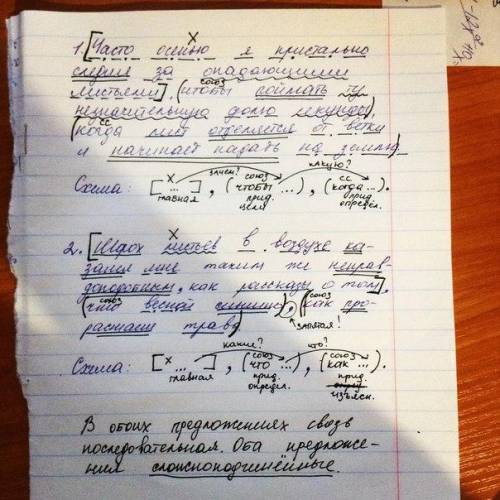 1. [Часто осенью я пристально
следил за опадающими
листьями], (чтобы поймать ту
союз
незначительную долю секунды),
(когда лист отделяется от ветки
сс
и начинает падать на землю).
Схема: [ ... ], (чтобы ...), (когда ...).
зачем? союз какую? сс
главная прид. цели прид. определ.
2. [Шорох листьев в воздухе ка-
зался мне таким же неправ-
доподобным, как рассказы о том],
(что весной слышно), (как про-
союз союз
растает трава).
запятая!
Схема: [ ... ], (что ...), (как ...).
какие? союз что? союз
главная прид. определ. прид. изъясн.
В обоих предложениях связь
последовательная. Оба предложе-
ния сложноподчинённые.